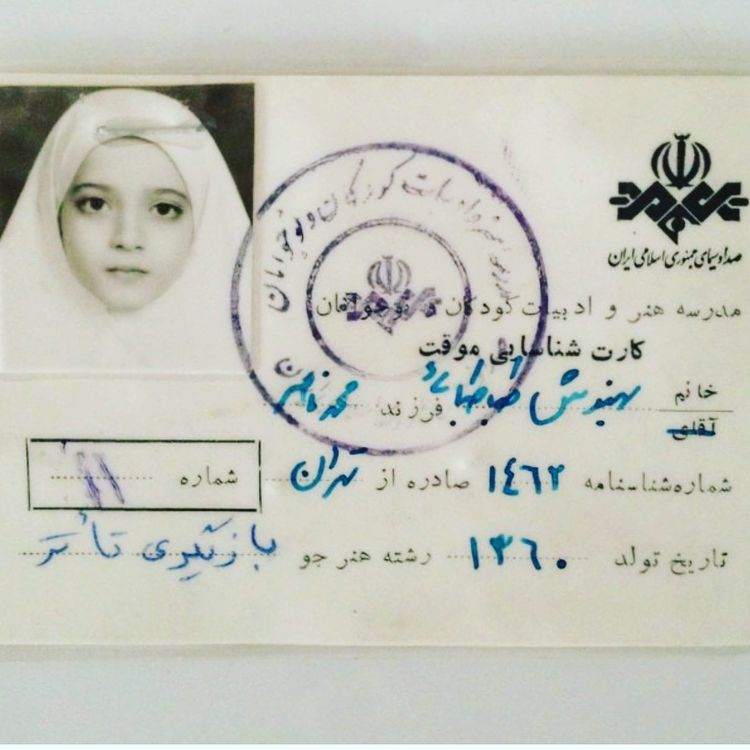 صدا و سیمای جمهوری اسلامی ایران
مدرسه هنر و ادبیات کودکان و نوجوانان
کارت شناسایی موقت
خانم / آقای طباطبائی فرزند محمد ناصر
شماره شناسنامه ۱۴۶۲ صادره از تهران
شماره ۱۱
تاریخ تولد ۱۳۶۰ رشته هنر جو بازیگری تأتر